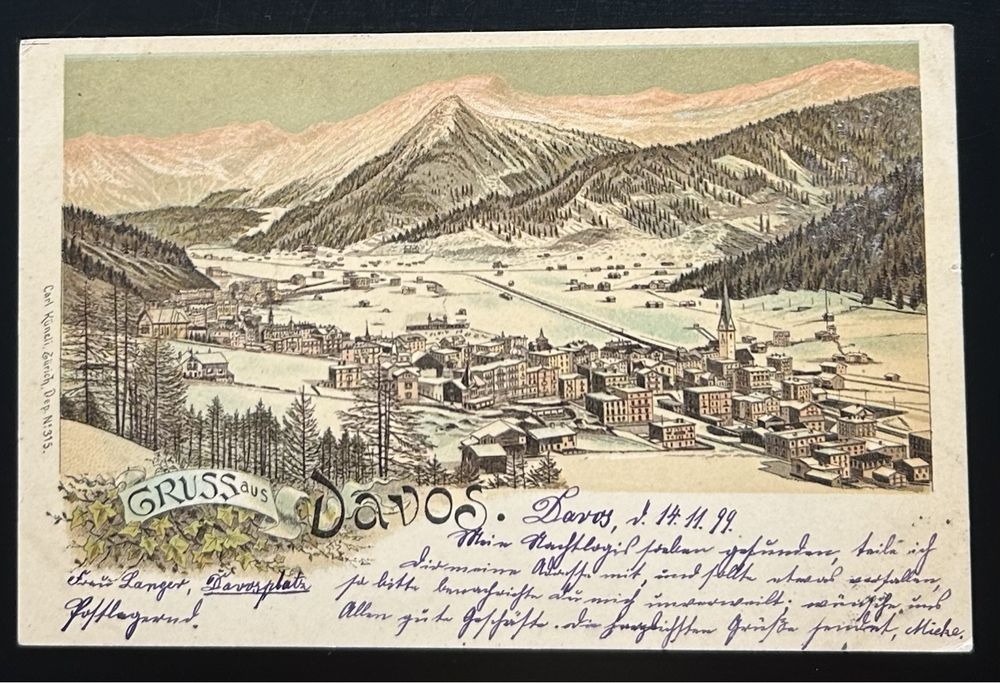 Carl Künzli, Zürich, Dep. № 315.
GRUSS aus
Davos.
Davos, d. 14. 11. 99.
Mein Nachtlogis soeben gefunden, teile ich
Dir meine Adresse mit, und sollte etwas vorfallen,
so bitte benachrichte Du mich unverweilt; wünsche uns
Allen gute Geschäfte. Die herzlichsten Grüße sendet, Mieke.
Frau Langer, Davosplatz
Postlagernd.